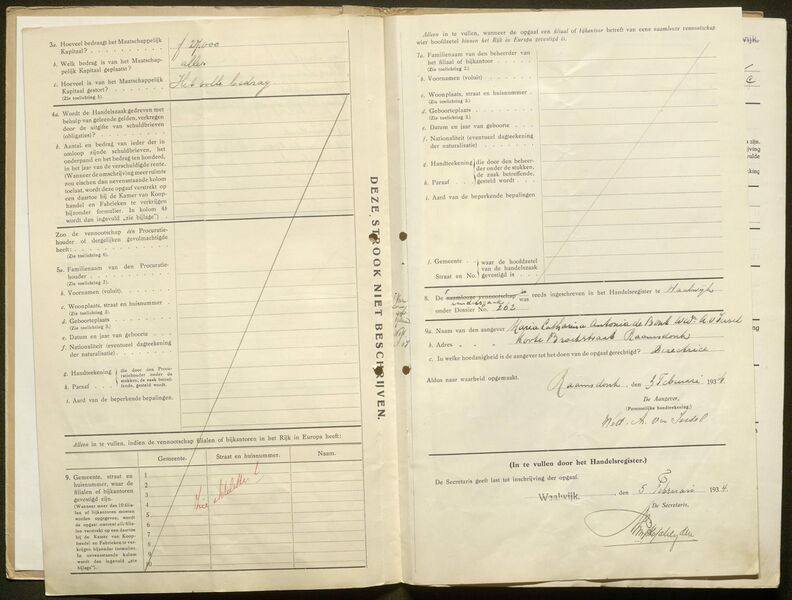 3a. Hoeveel bedraagt het Maatschappelijk
Kapitaal? f 27,000
b. Welk bedrag is van het Maatschap-
pelijk Kapitaal geplaatst? alles
c. Hoeveel is van het Maatschappelijk
Kapitaal gestort? Het volle bedrag
(Zie toelichting 5).
4a. Wordt de Handelszaak gedreven met
behulp van geleende gelden, verkregen
door de uitgifte van schuldbrieven
(obligaties)?
b. Aantal en bedrag van ieder der in
omloop zijnde schuldbrieven, het
onderpand en het bedrag ten honderd,
in het jaar van de verschuldigde rente.
(Wanneer de omschrijving meer ruimte
zou eischen dan nevenstaande kolom
toelaat, wordt deze opgaaf verstrekt op
een daartoe bij de Kamer van Koop-
handel en Fabrieken te verkrijgen
bijzonder formulier. In kolom 4b
wordt dan ingevuld „zie bijlage")
Zoo de vennootschap één Procuratie-
houder of dergelijken gevolmachtigde
heeft:
(Zie toelichting 6).
5a. Familienaam van den Procuratie-
houder
(Zie toelichting 2).
b. Voornamen (voluit)
c. Woonplaats, straat en huisnummer
(Zie toelichting 3).
d. Geboorteplaats
(Zie toelichting 3).
e. Datum en jaar van geboorte
f. Nationaliteit (eventueel dagteekening
der naturalisatie)
g. Handteekening die door den Procu-
ratiehouder onder de
stukken, de zaak betref-
h. Paraaf fende, gesteld wordt.
i. Aard van de beperkende bepalingen
Alleen in te vullen, indien de vennootschap filialen of bijkantoren in het Rijk in Europa heeft:
Gemeente. Straat en huisnummer. Naam.
9. Gemeente, straat en
huisnummer, waar de
filialen of bijkantoren
gevestigd zijn.
(Wanneer meer dan 10 filia-
len of bijkantoren moeten
worden opgegeven, wordt
de opgaaf omtrent alle filia-
len verstrekt op een daartoe
bij de Kamer van Koop-
handel en Fabrieken te ver-
krijgen bijzonder formulier.
In nevenstaande kolom
wordt dan ingevuld „zie
bijlage").
1
2
3
4
5
6
7
8
9
10
DEZE STROOK NIET BESCHRIJVEN.
Alleen in te vullen, wanneer de opgaaf een filiaal of bijkantoor betreft van eene naamlooze vennootschap
wier hoofdzetel binnen het Rijk in Europa gevestigd is.
7a. Familienaam van den beheerder van
het filiaal of bijkantoor
(Zie toelichting 2.)
b. Voornamen (voluit)
c. Woonplaats, straat en huisnummer
(Zie toelichting 3.)
d. Geboorteplaats
(Zie toelichting 3.)
e. Datum en jaar van geboorte
f. Nationaliteit (eventueel dagteekening
der naturalisatie)
g. Handteekening die door den beheer-
der onder de stukken,
de zaak betreffende,
h. Paraaf gesteld wordt
i. Aard van de beperkende bepalingen
j. Gemeente waar de hoofdzetel
van de handelszaak
Straat en No. gevestigd is
8. De naamlooze vennootschap was reeds ingeschreven in het Handelsregister te Waalwijk
onder Dossier No. 202
9a. Naam van den aangever Maria Catharina Antonia de Bont Wed. A. v. Iersel
b. Adres „ „ „ Korte Broekstraat Raamsdonk
c. In welke hoedanigheid is de aangever tot het doen van de opgaaf gerechtigd? Directrice
Aldus naar waarheid opgemaakt.
Raamsdonk, den 3 Februari 1934
De Aangever,
(Persoonlijke handteekening.)
Wed. A. van Iersel
(In te vullen door het Handelsregister.)
De Secretaris geeft last tot inschrijving der opgaaf.
Waalwijk, den 5 Februari 1934
De Secretaris,